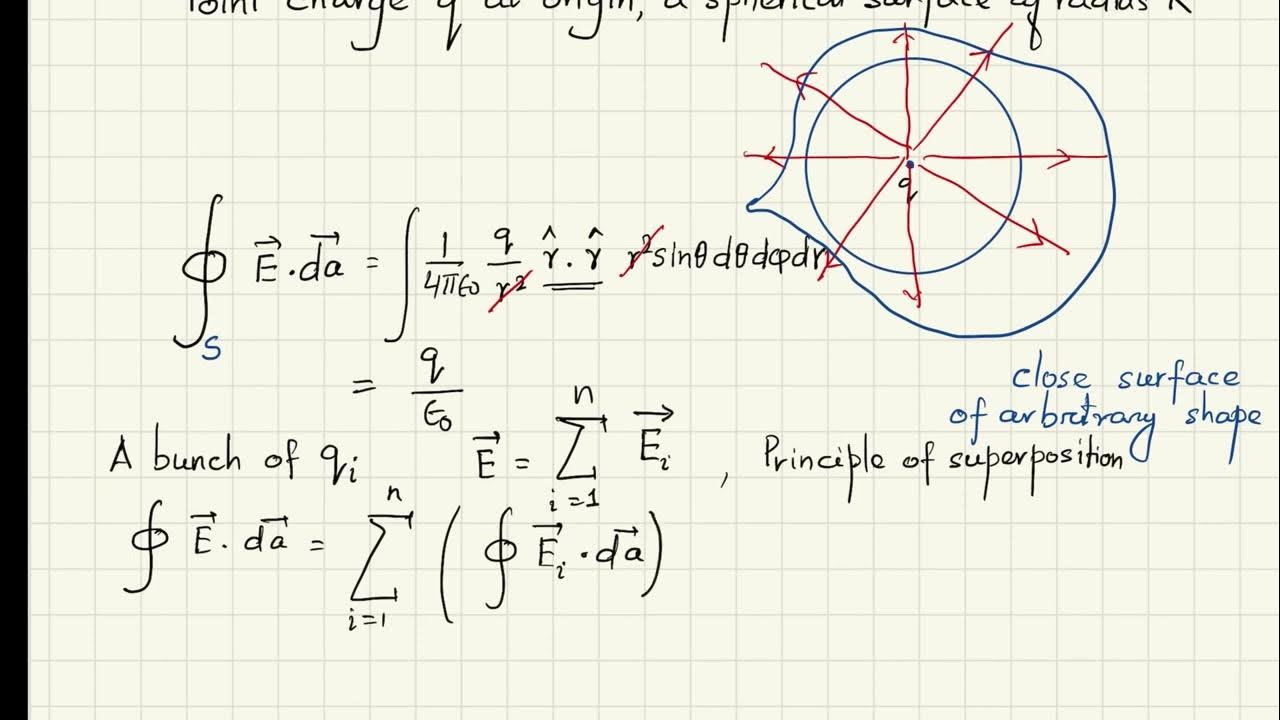 Point charge q at origin, a spherical surface of radius R
q
∮_S E⃗ · da⃗ = ∫ 1/4πϵ₀ q/r² r̂ · r̂ r² sinθ dθ dφ dr
= q/ϵ₀
close surface
of arbitrary shape
A bunch of qᵢ E⃗ = ∑_{i=1}^{n} E⃗ᵢ , Principle of superposition
∮ E⃗ · da⃗ = ∑_{i=1}^{n} ( ∮ E⃗ᵢ · da⃗ )